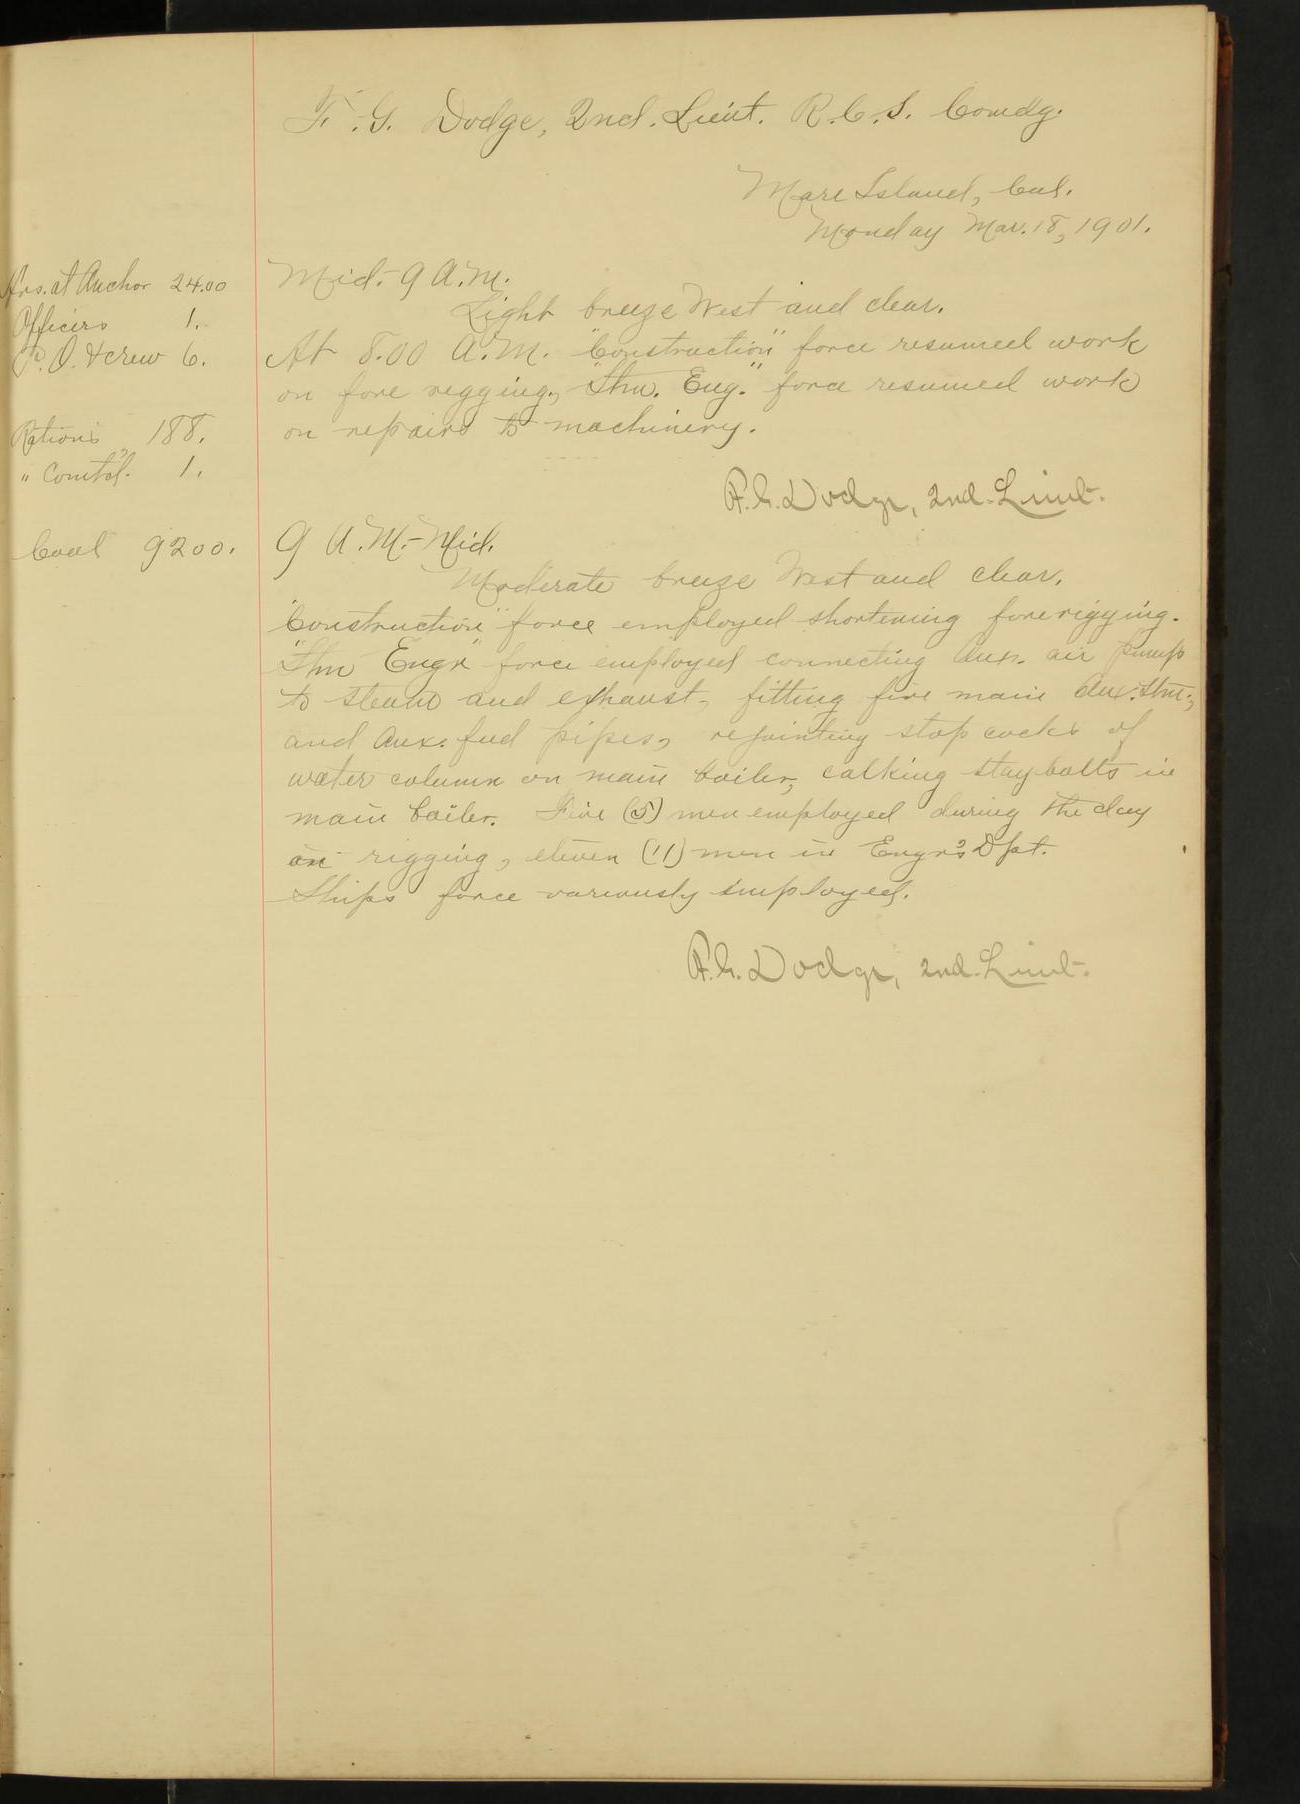 F. G. Dodge, 2nd. Lieut. R.C.S. Comdg.
Mare Island, Cal.
Monday Mar. 18, 1901.
Hrs. at Anchor 24.00
Officers 1.
P. O. & crew 6.
Rations 188.
" Comtd. 1.
Coal 9200.
Mid.- 9 A.M.
Light breeze West and clear.
At 8.00 A.M. "Construction" force resumed work
on fore rigging, "Stm. Eng." force resumed work
on repairs to machinery.
F.G. Dodge, 2nd. Lieut.
9 A.M.- Mid.
Moderate breeze West and clear.
"Construction" force employed shortening fore rigging.
"Stm Engr" force employed connecting Aux. air pump
to steam and exhaust, fitting fire main Aux. Stm.,
and Aux. feed pipes, rejointing stop cocks of
water column on main boiler, calking stay bolts in
main boiler. Five (5) men employed during the day
on rigging, eleven (11) men in Engr's Dpt.
Ships force variously employed.
F.G. Dodge, 2nd. Lieut.